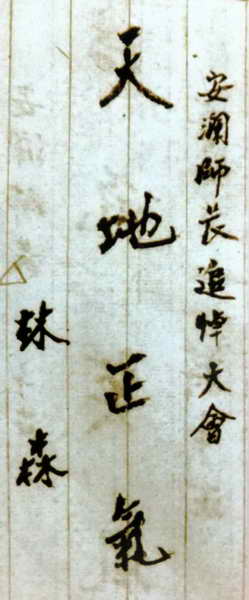 安瀾師長追悼大會
天地正氣
林森